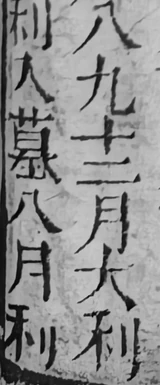 八九十二月大利
利入墓八月利